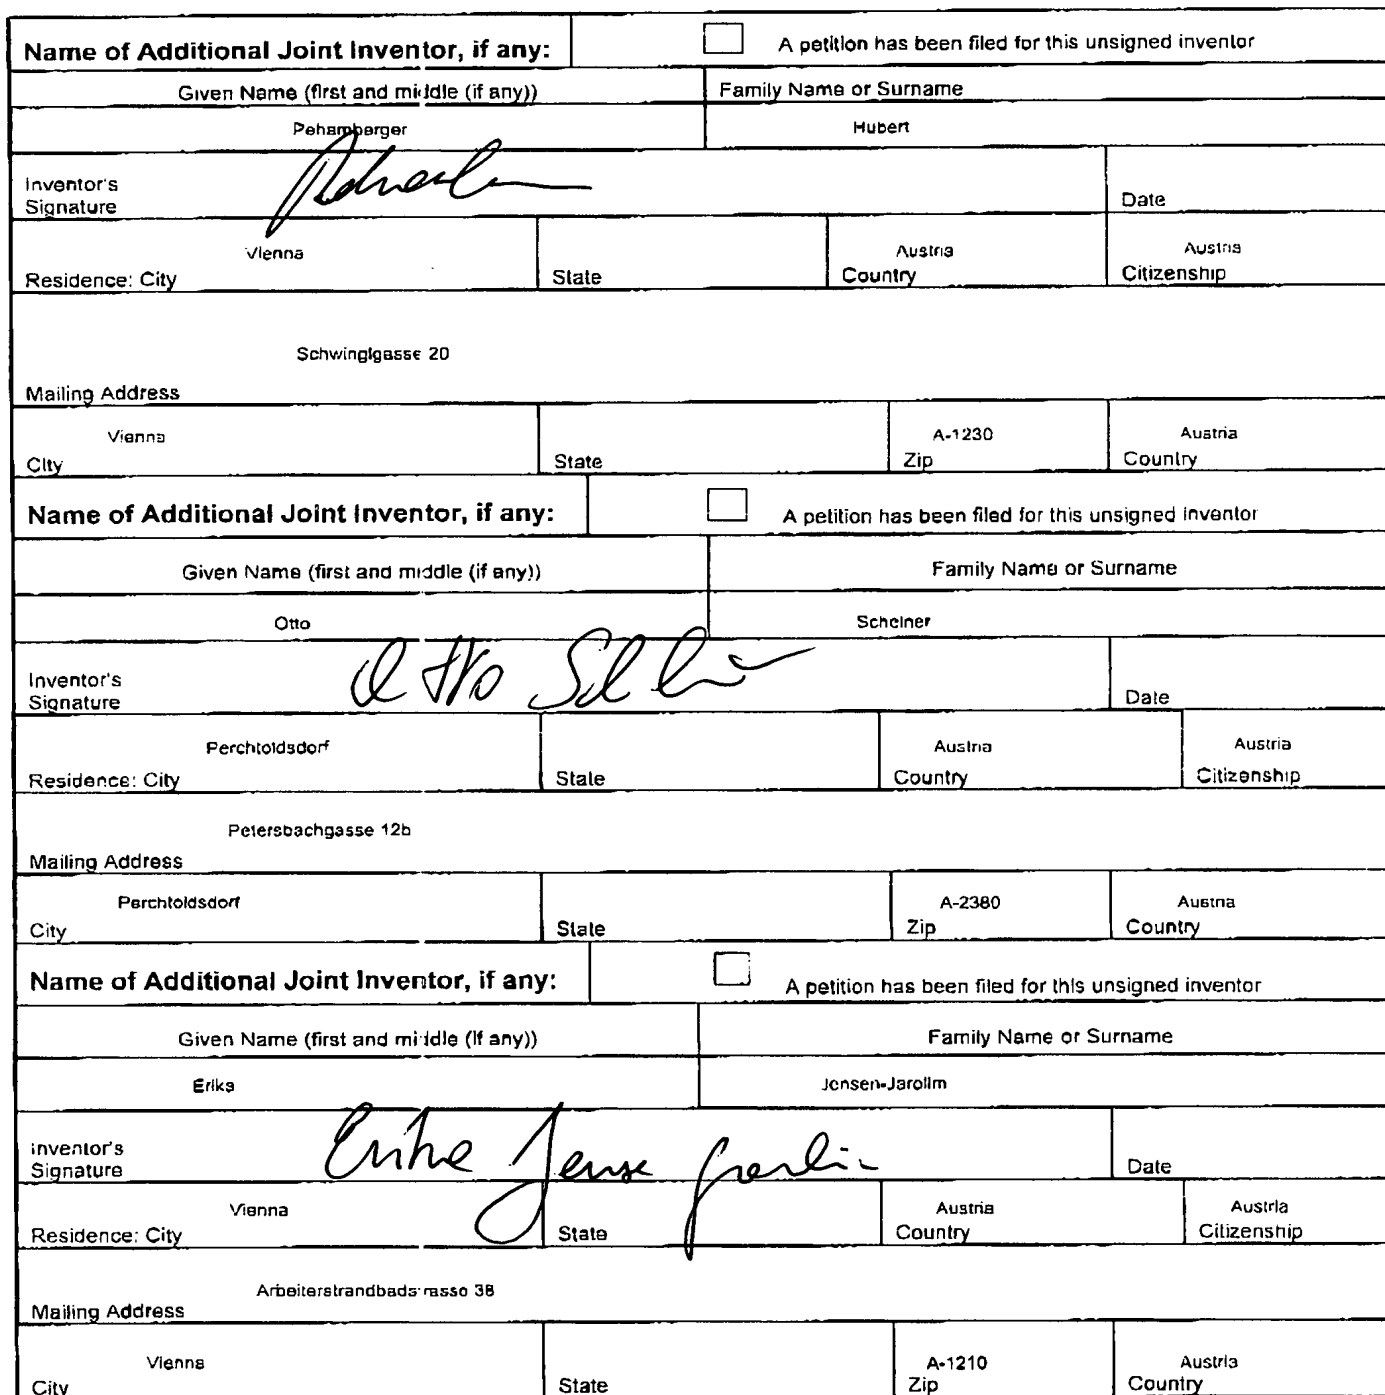 Name of Additional Joint Inventor, if any: A petition has been filed for this unsigned inventor
Given Name (first and middle (if any)) Family Name or Surname
Pehamberger Hubert
Inventor's
Signature Date
Vienna Austria Austria
Residence: City State Country Citizenship
Schwinglgasse 20
Mailing Address
Vienna A-1230 Austria
City State Zip Country
Name of Additional Joint Inventor, if any: A petition has been filed for this unsigned inventor
Given Name (first and middle (if any)) Family Name or Surname
Otto Scheiner
Inventor's
Signature Otto Date
Perchtoldsdorf Austria Austria
Residence: City State Country Citizenship
Petersbachgasse 12b
Mailing Address
Perchtoldsdorf A-2380 Austria
City State Zip Country
Name of Additional Joint Inventor, if any: A petition has been filed for this unsigned inventor
Given Name (first and middle (if any)) Family Name or Surname
Erika Jensen-Jarolim
Inventor's
Signature Erika Date
Vienna Austria Austria
Residence: City State Country Citizenship
38
Mailing Address
Vienna A-1210 Austria
City State Zip Country